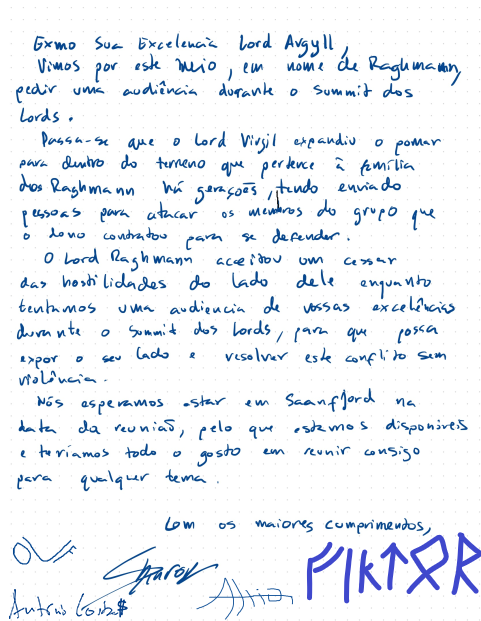 Exmo Sua Excelencia Lord Argyll,
Vimos por este meio, em nome de Raghmann,
pedir uma audiência durante o Summit dos
Lords.
Passa-se que o Lord Virgil expandiu o pomar
para dentro do terreno que pertence à família
dos Raghmann há gerações, tendo enviado
pessoas para atacar os membros do grupo que
o dono contratou para se defender.
O Lord Raghmann aceitou um cessar
das hostilidades do lado dele enquanto
tentamos uma audiencia de vossas excelências
durante o Summit dos Lords, para que possa
expor o seu lado e resolver este conflito sem
violência.
Nós esperamos estar em Saanfjord na
data da reunião, pelo que estamos disponiveis
e teriamos todo o gosto em reunir consigo
para qualquer tema.
Com os maiores cumprimentos,
António Costa$